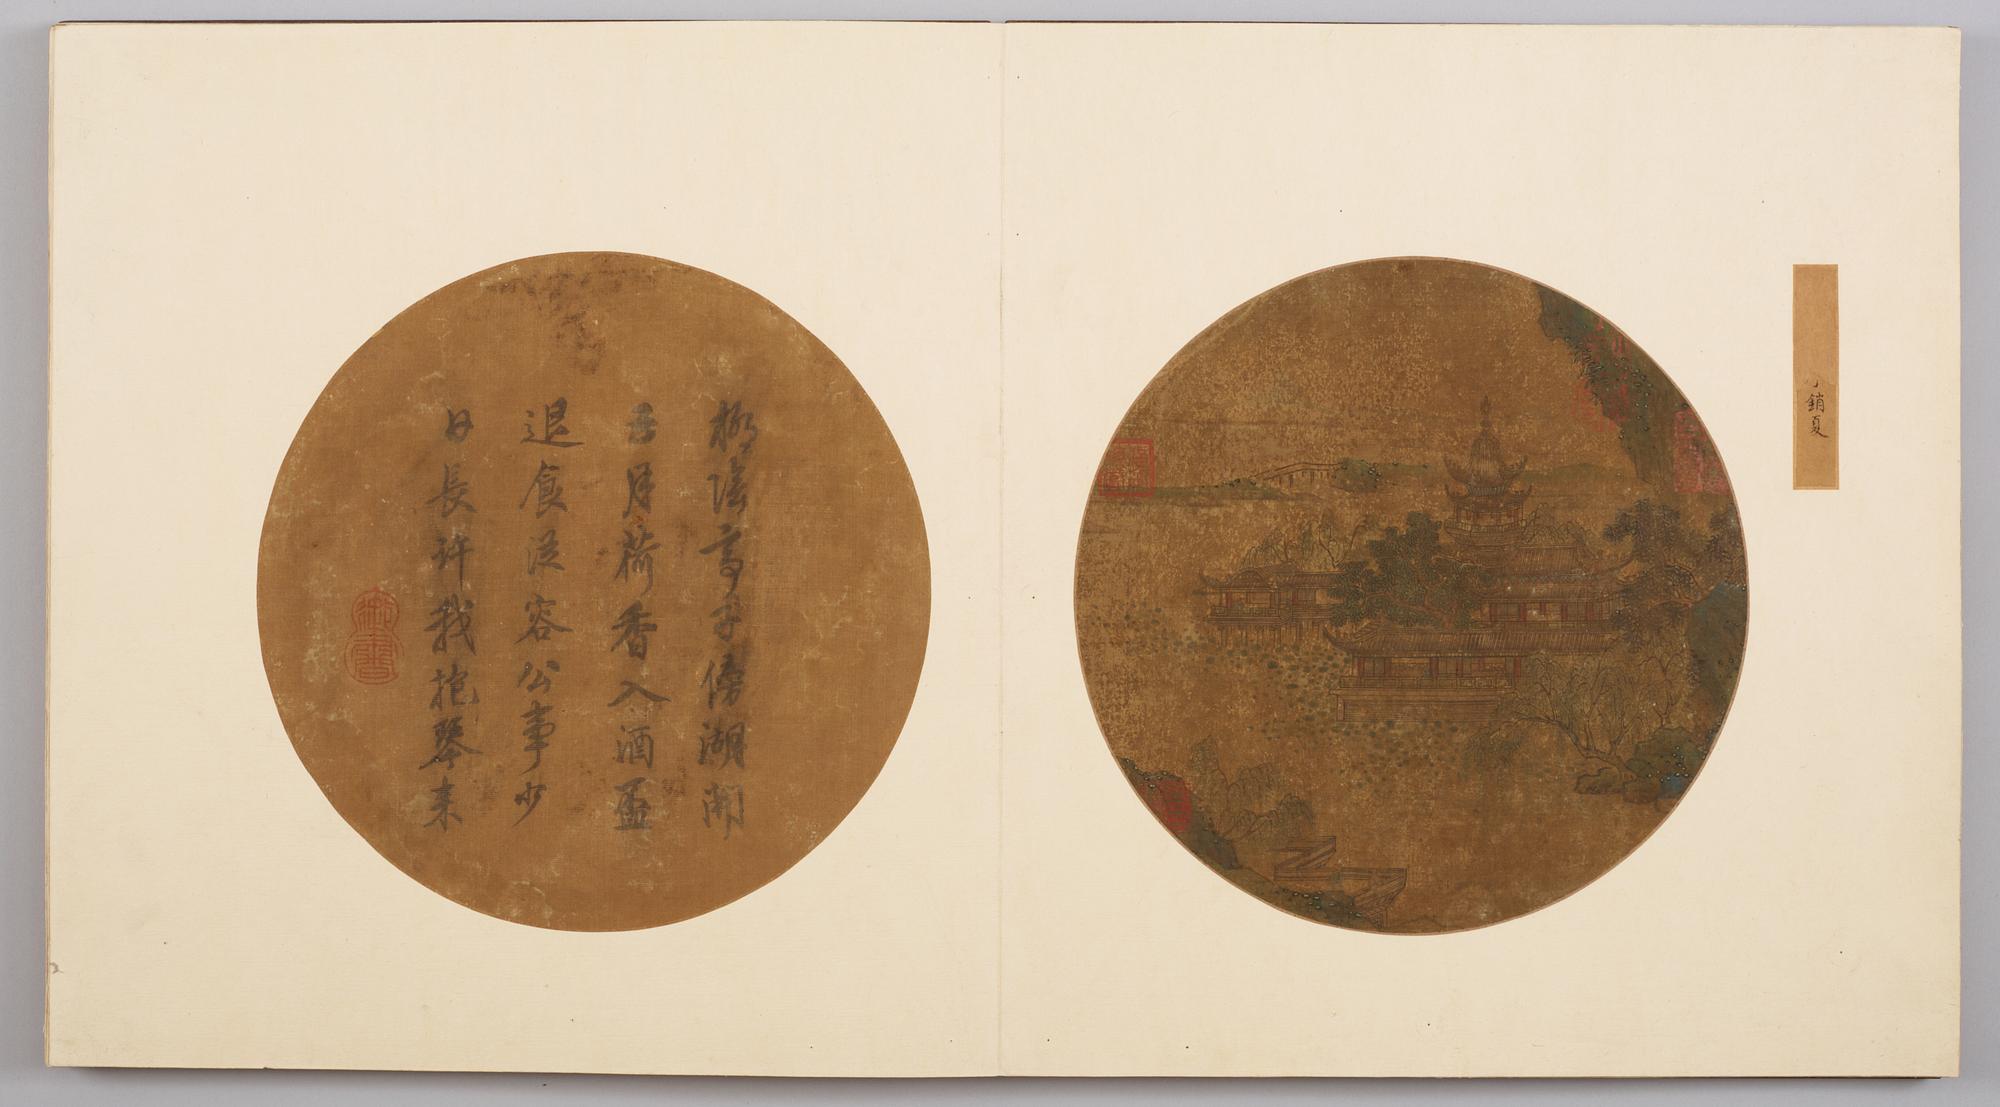 銷夏
柳陰亭子傍湖開
五月荷香入酒盃
退食從容公事少
日長許我抱琴來
御書